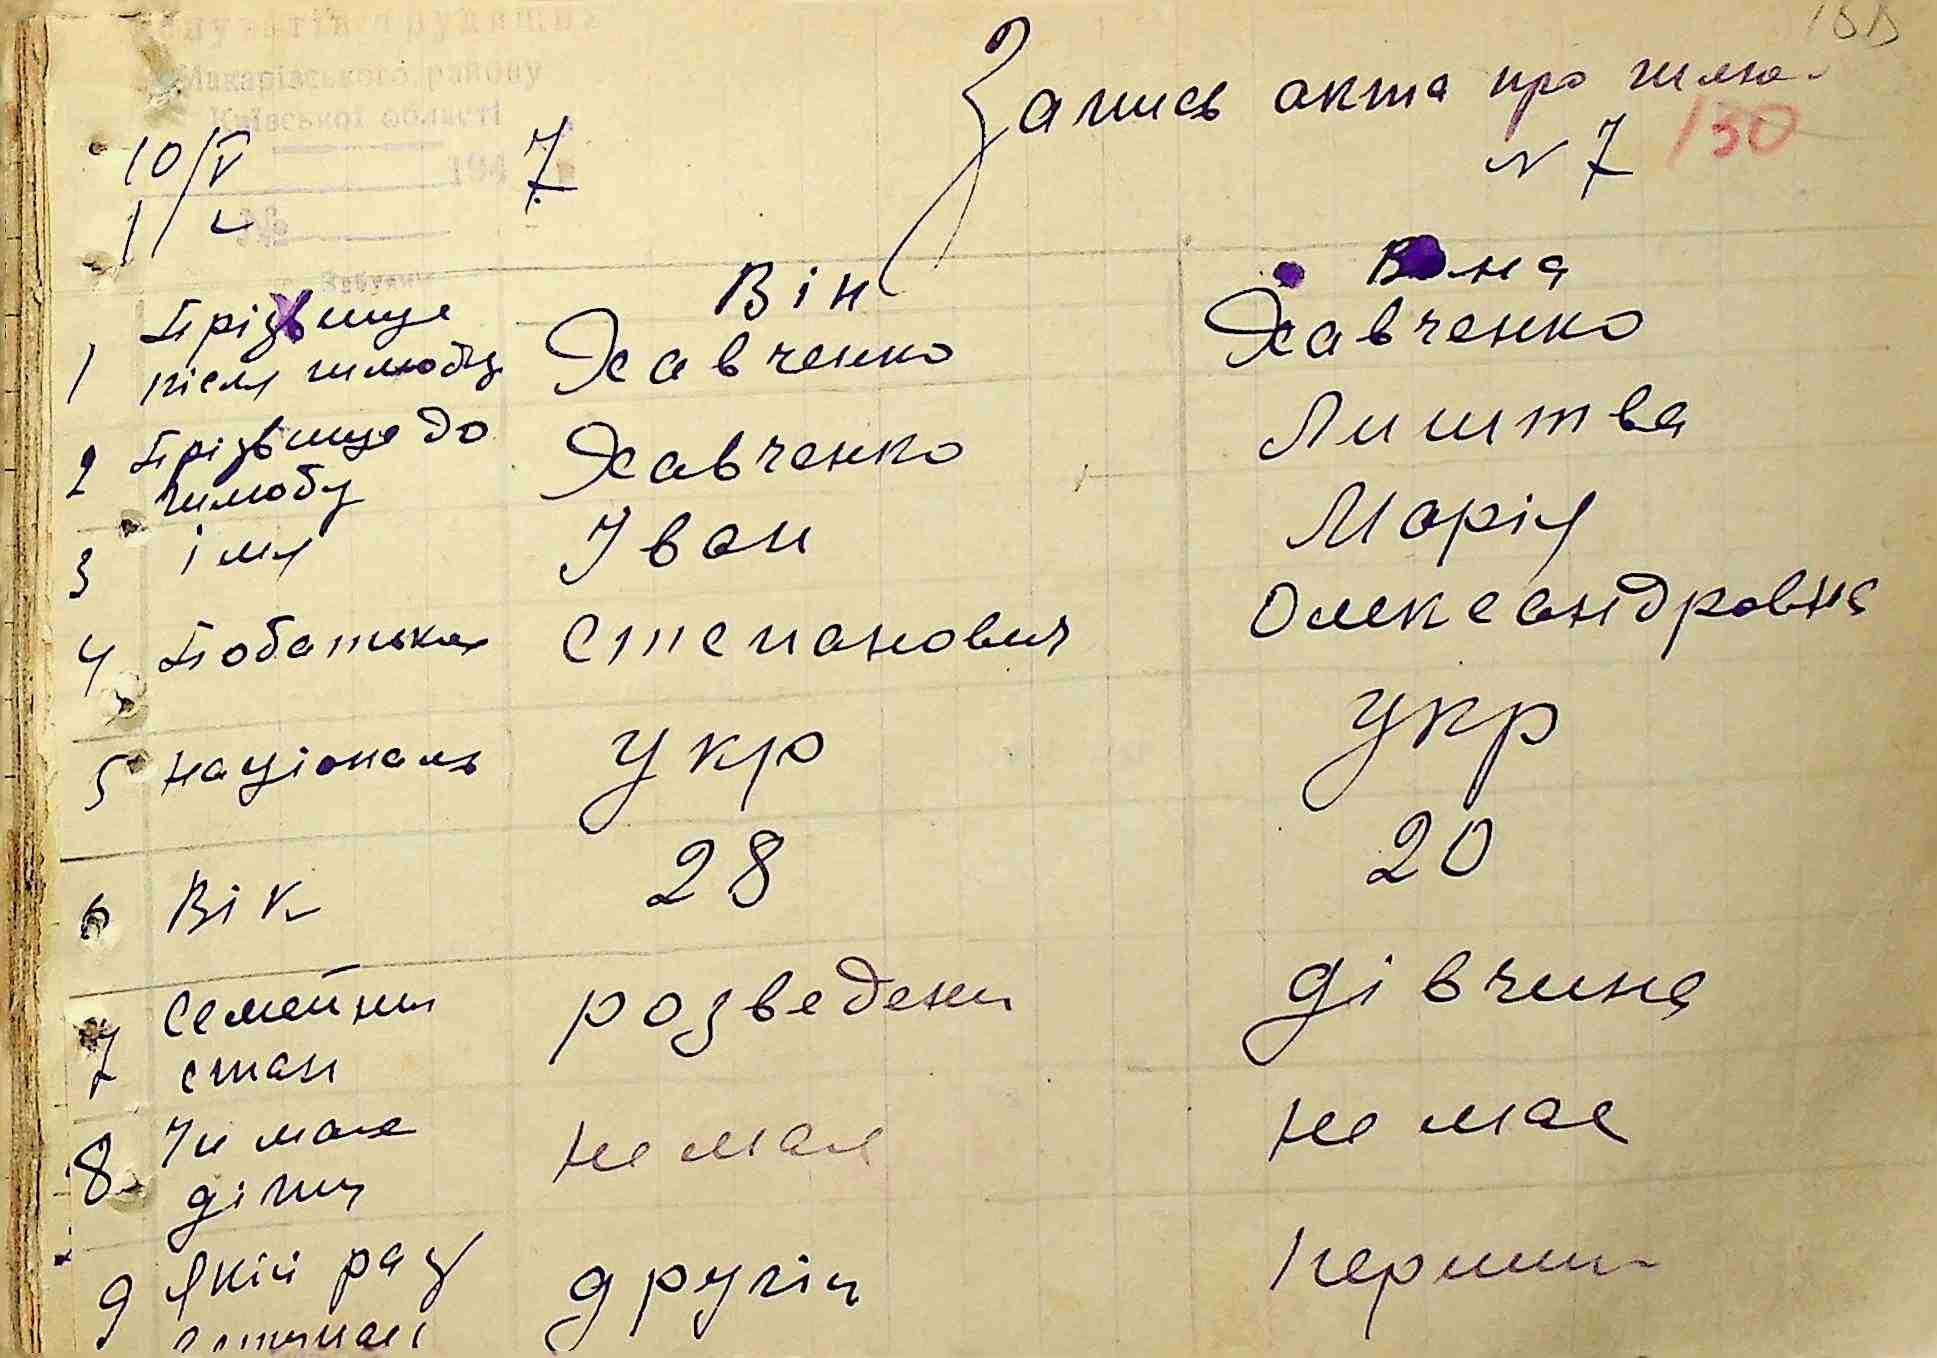 депутатів трудящих
Макарівського району
Київської області
194
№
Запись акта про шлю-
N 7 130
10/V 7
Він Вона
1 Прізвище після шлюбу Хавченко Хавченко
2 Прізвище до шлюбу Хавченко Лиштва
3 імя Іван Марія
4 Побатькові Степанович Олександровна
5 Національ укр укр
6 Вік 28 20
7 Семейний стан розведени дівчина
8 Чи має діти не має не має
9 Який раз вступає другій перший